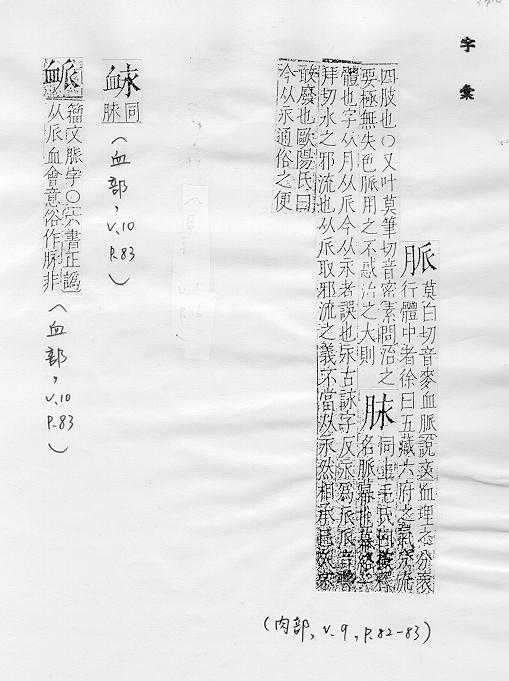 字彚
脈
莫白切音麥血脈說文血理之分衺
行體中者徐曰五藏六府之氣分流
四肢也○又叶莫筆切音密素問治之
要極無失色脈用之不惑治之大則
脉
同上毛氏曰釋
名脈幕也幕絡一
體也字从月从𠂢今从永者誤也永古詠字反永爲𠂢𠂢音普
拜切水之邪流也从𠂢取邪流之義不當从永然相承旣久不
敢廢也歐陽氏曰
今从永通俗之便
(肉部, v.9, P.82-83)
䘑
同
脉
(血部, v.10 P.83)
衇
籀文脈字○六書正譌
从𠂢血會意俗作脉非
(血部, v.10 P.83)